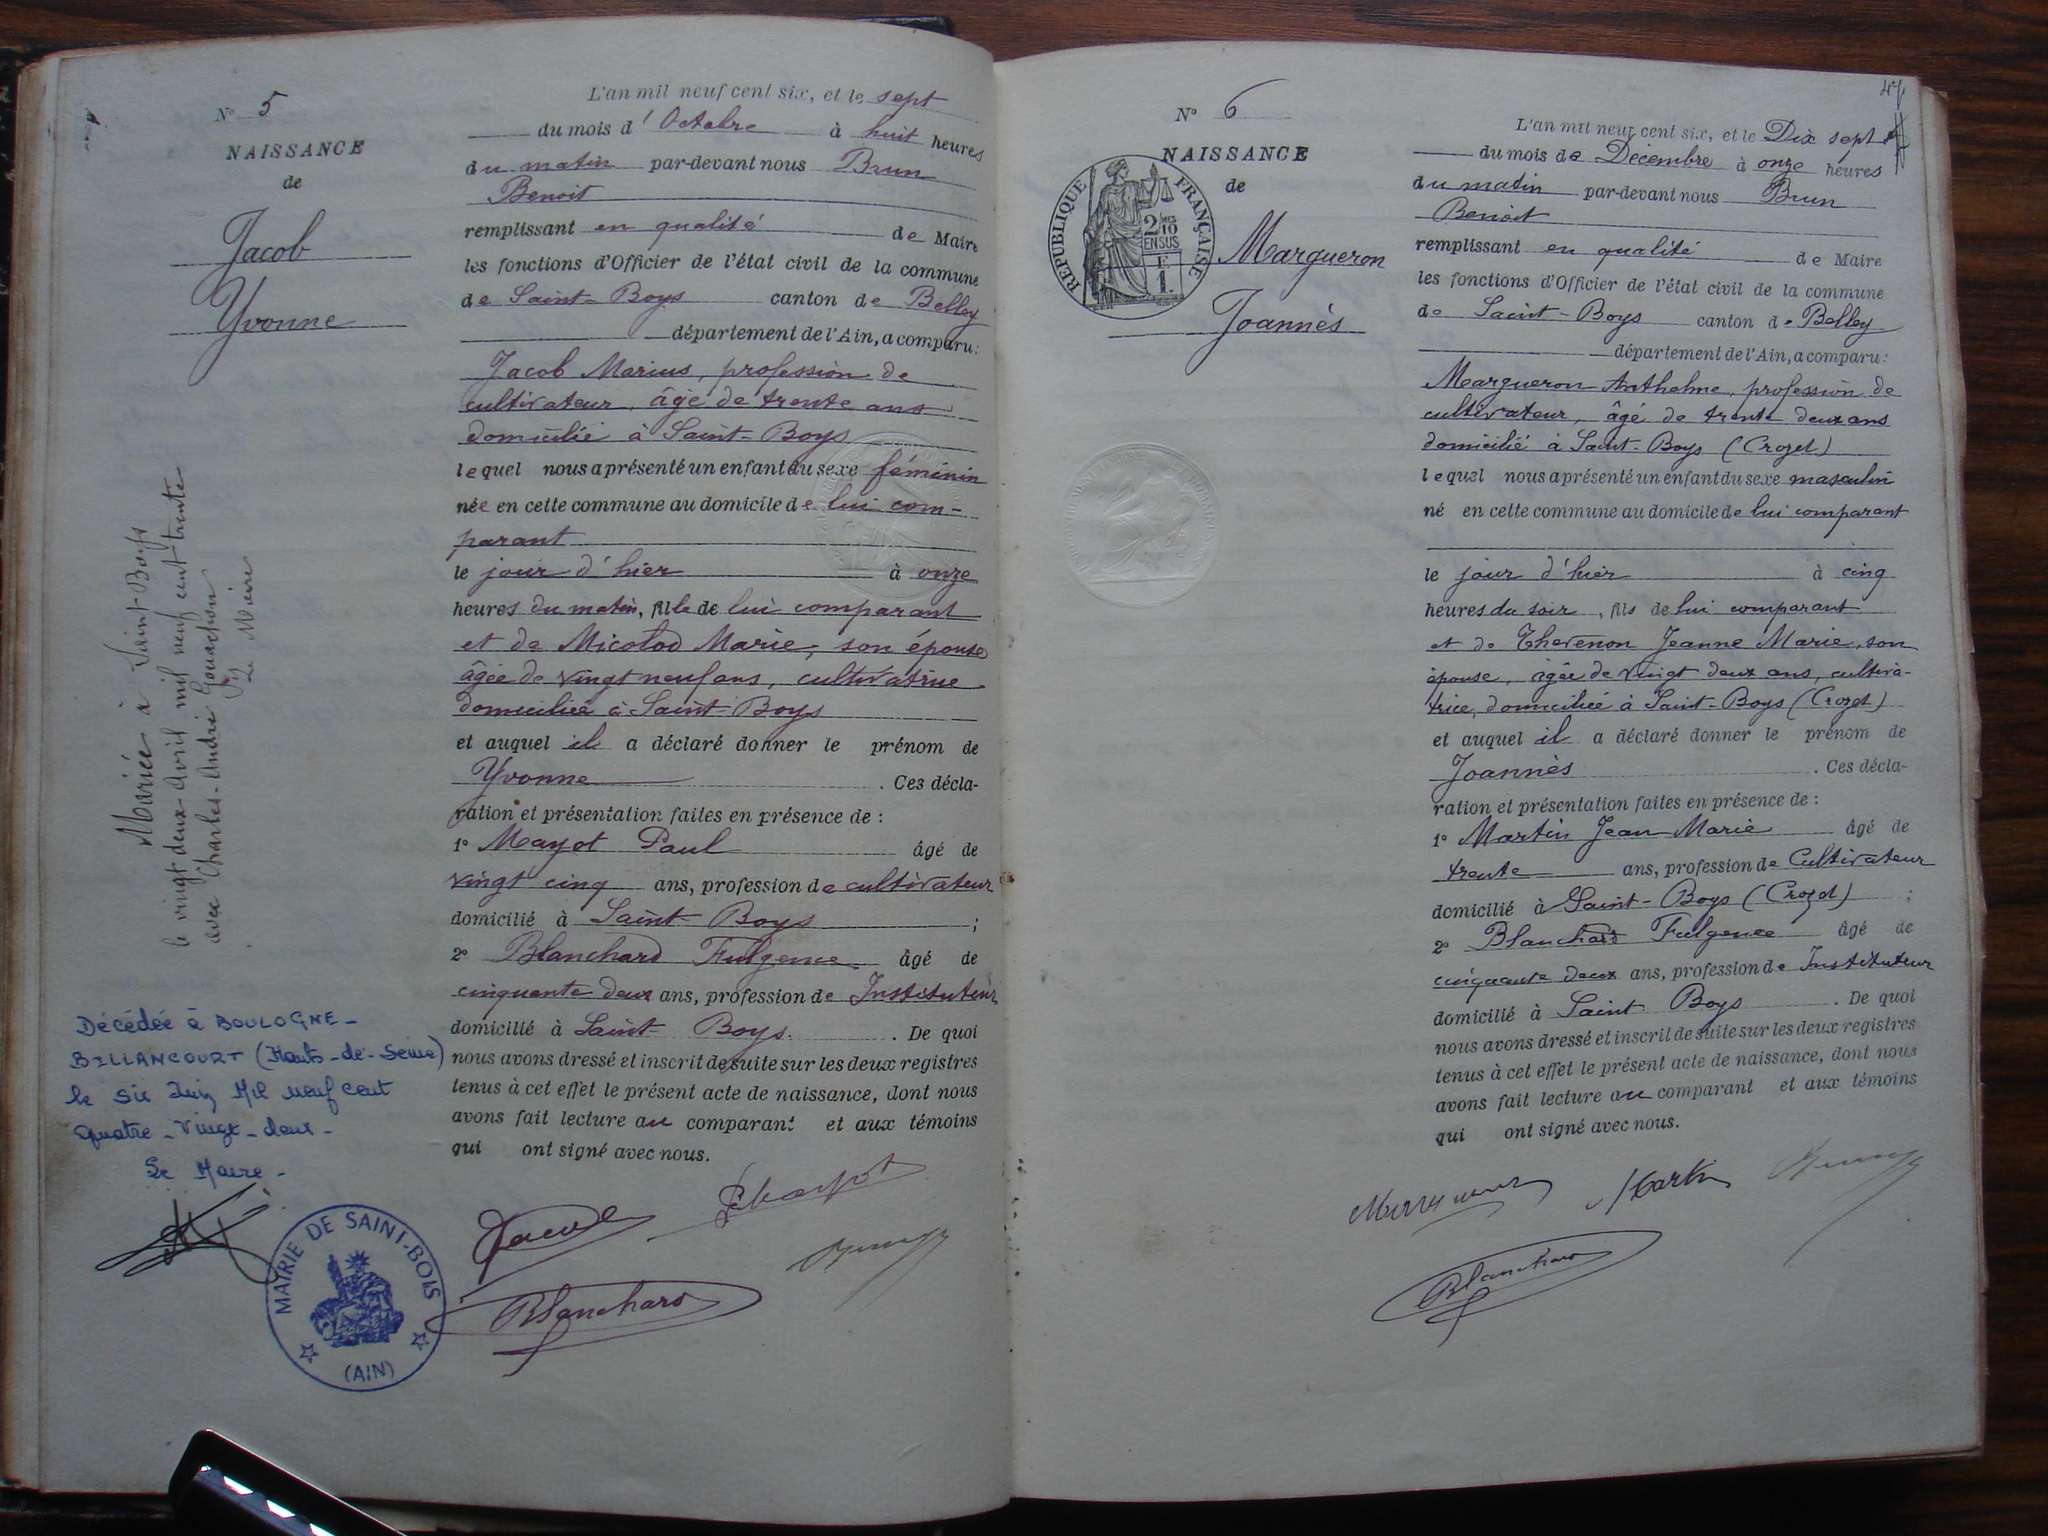 N° 5
NAISSANCE
de
Jacob
Yvonne
Mariée à Saint-Boys
le vingt deux Avril mil neuf cent trente
avec Charles-André
Le Maire
Décédée à BOULOGNE-
BILLANCOURT (Hauts-de-Seine)
le six Juin Mil neuf cent
quatre-vingt-deux-
Le Maire-
MAIRIE DE SAINT-BOIS
(AIN)
L'an mil neuf cent six, et le sept
du mois d'Octobre à huit heures
du matin par-devant nous Brun
Benoit
remplissant en qualité de Maire
les fonctions d'Officier de l'état civil de la commune
de Saint-Boys canton de Belley
département de l'Ain, a comparu:
Jacob Marius, profession de
cultivateur, âgé de trente ans
domicilié à Saint-Boys
lequel nous a présenté un enfant du sexe féminin
née en cette commune au domicile de lui com-
parant
le jour d'hier à onze
heures du matin, fille de lui comparant
et de Micolod Marie, son épouse
âgée de vingt neuf ans, cultivatrice
domiciliée à Saint-Boys
et auquel il a déclaré donner le prénom de
Yvonne. Ces décla-
ration et présentation faites en présence de :
1° Mayot Paul âgé de
vingt cinq ans, profession de cultivateur
domicilié à Saint-Boys ;
2° Blanchard Fulgence âgé de
cinquante deux ans, profession de Instituteur
domicilié à Saint-Boys. De quoi
nous avons dressé et inscrit de suite sur les deux registres
tenus à cet effet le présent acte de naissance, dont nous
avons fait lecture au comparant et aux témoins
qui ont signé avec nous.
Jacob
Blanchard
47
N° 6
NAISSANCE
de
RÉPUBLIQUE FRANÇAISE
2 MES
10
EN SUS
F
1.
Margueron
Joannès
L'an mil neuf cent six, et le Dix sept
du mois de Décembre à onze heures
du matin par-devant nous Brun
Benoit
remplissant en qualité de Maire
les fonctions d'Officier de l'état civil de la commune
de Saint-Boys canton de Belley
département de l'Ain, a comparu:
Margueron Anthelme, profession de
cultivateur, âgé de trente deux ans
domicilié à Saint-Boys (Crozet)
lequel nous a présenté un enfant du sexe masculin
né en cette commune au domicile de lui comparant
le jour d'hier à cinq
heures du soir, fils de lui comparant
et de Thevenon Jeanne Marie, son
épouse, âgée de vingt deux ans, cultiva-
trice, domiciliée à Saint-Boys (Crozet)
et auquel il a déclaré donner le prénom de
Joannès. Ces décla-
ration et présentation faites en présence de :
1° Martin Jean Marie âgé de
trente ans, profession de Cultivateur
domicilié à Saint-Boys (Crozet) ;
2° Blanchard Fulgence âgé de
cinquante deux ans, profession de Instituteur
domicilié à Saint Boys. De quoi
nous avons dressé et inscrit de suite sur les deux registres
tenus à cet effet le présent acte de naissance, dont nous
avons fait lecture au comparant et aux témoins
qui ont signé avec nous.
Margueron Martin
Blanchard